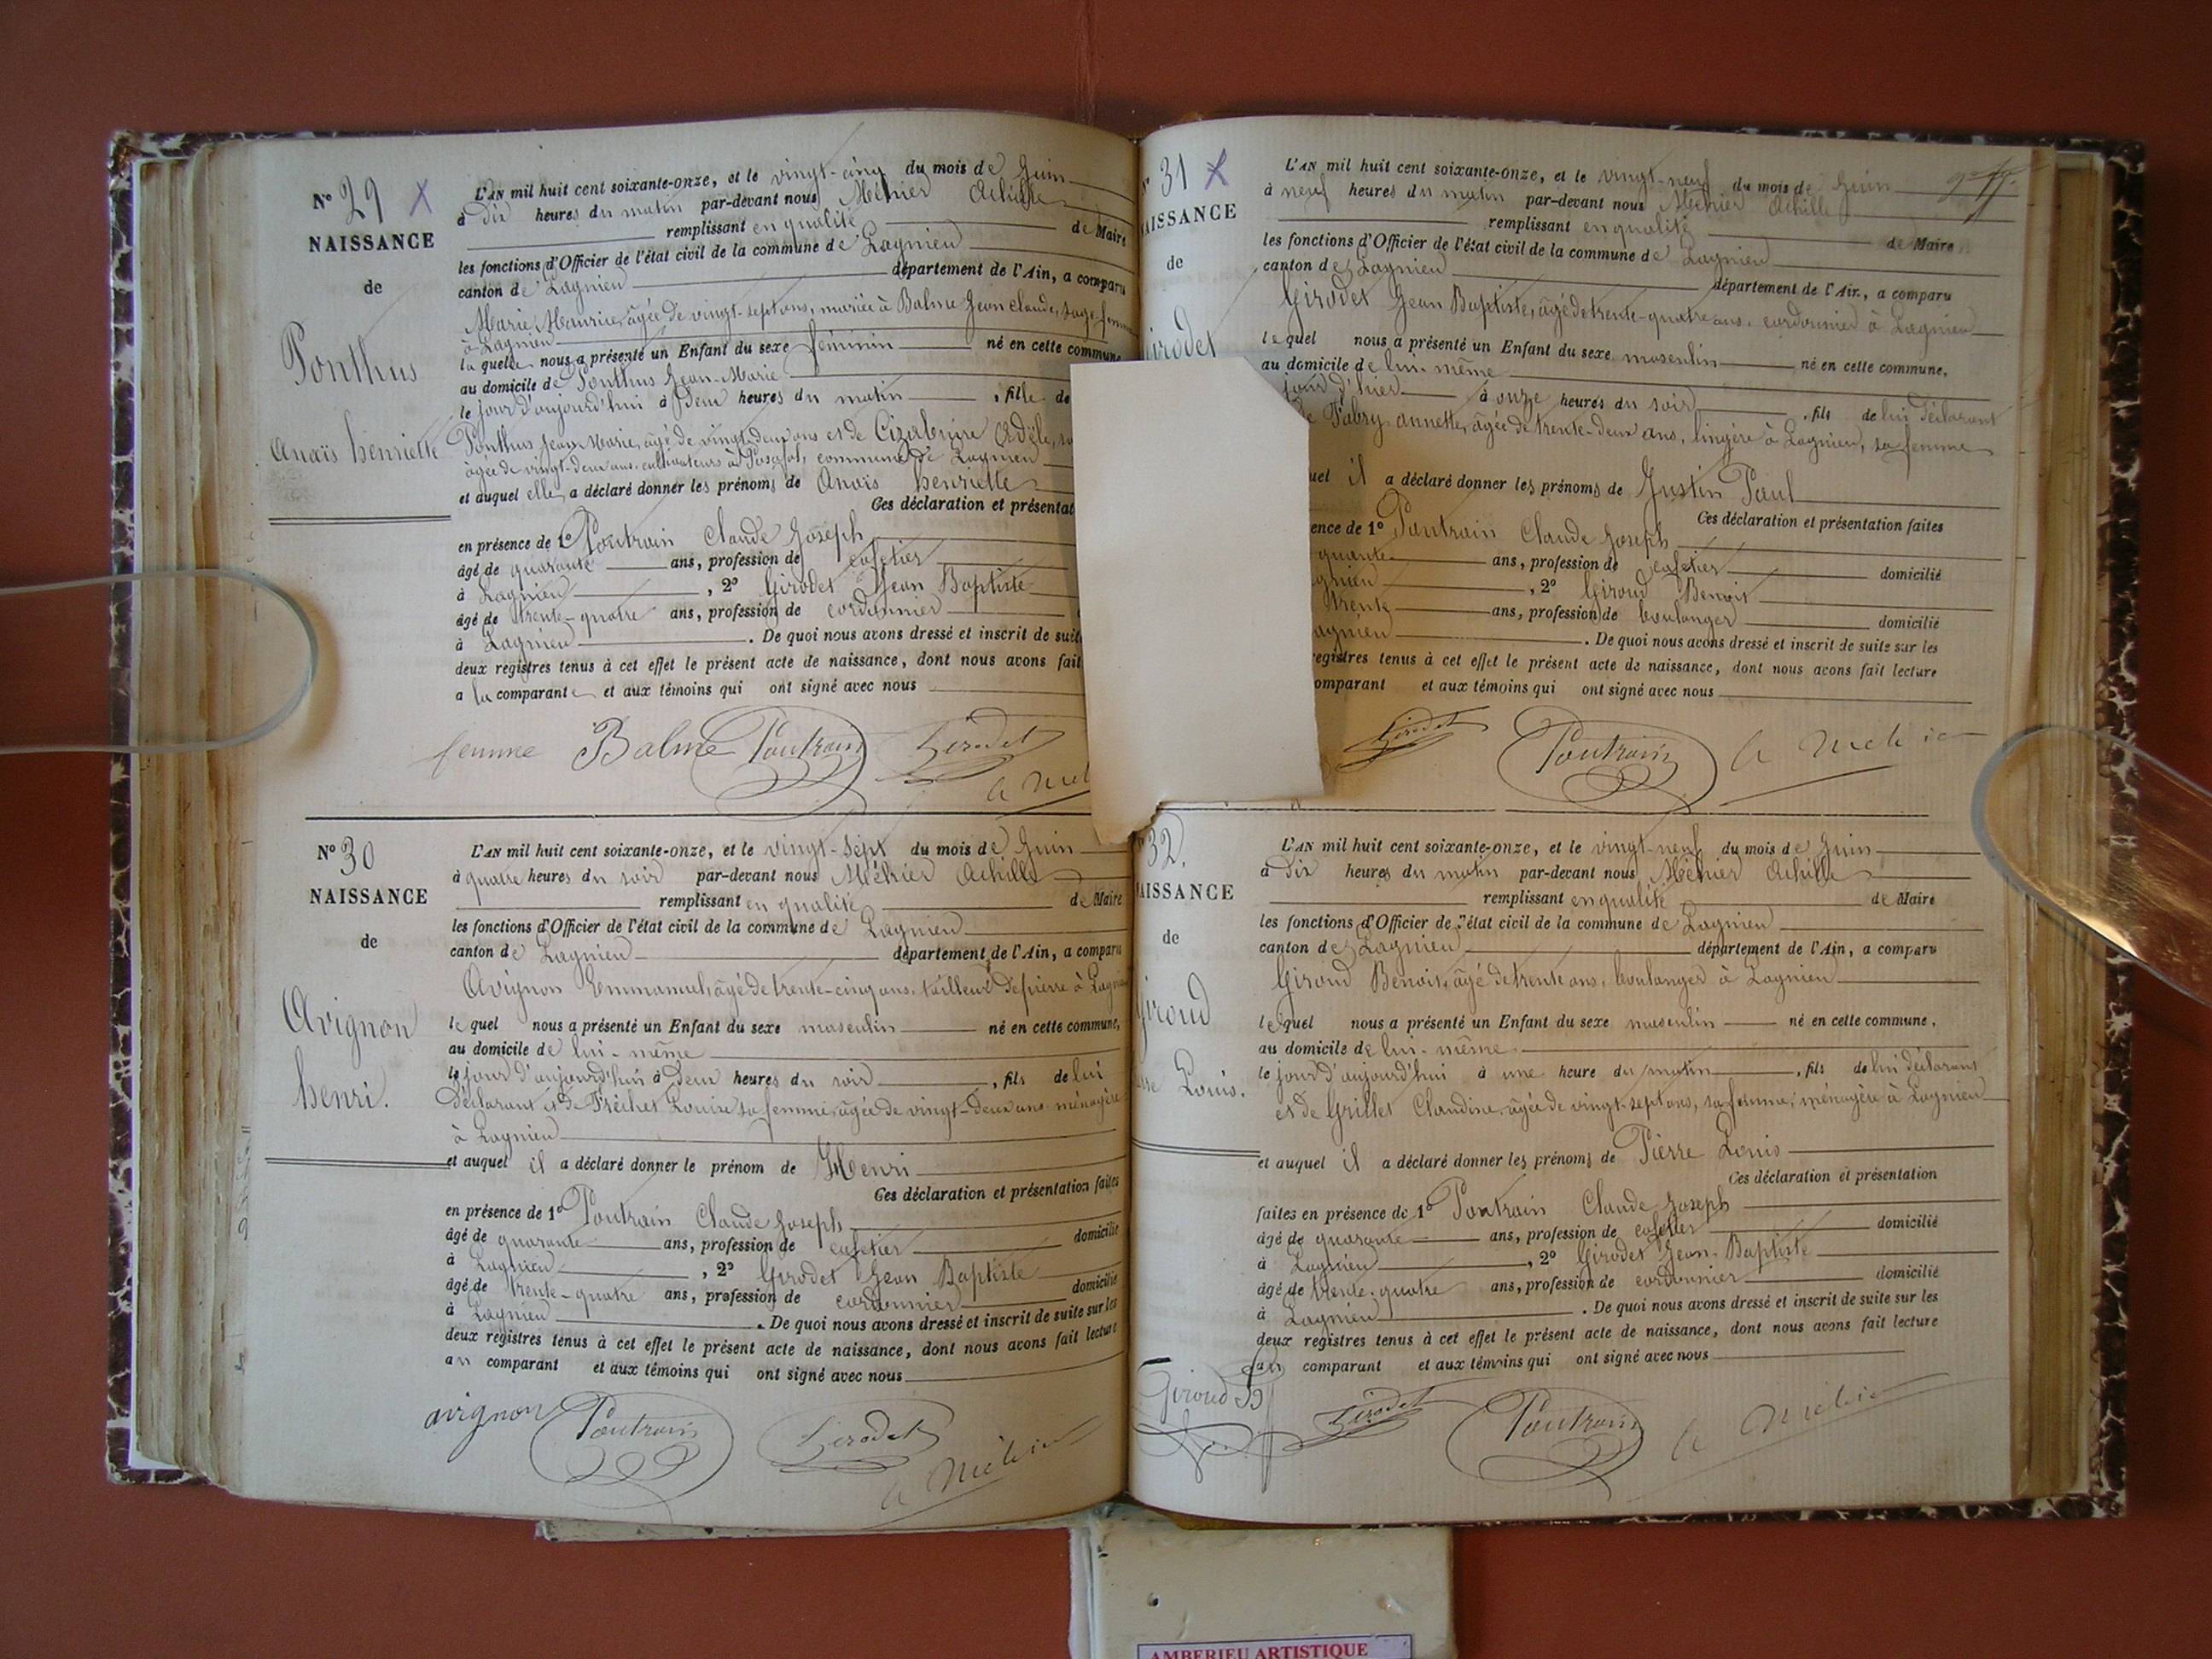 N° 29 X
NAISSANCE
de
Ponthus
Anaïs henriette
L'AN mil huit cent soixante-onze, et le vingt-cinq du mois de Juin
à dix heures du matin par-devant nous Méhier Achille
remplissant en qualité de Maire
les fonctions d'Officier de l'état civil de la commune de Lagnieu
canton de Lagnieu département de l'Ain, a comparu
Marie Maurice, âgée de vingt-sept ans, mariée à Balme Jean Claude, sage-femme
à Lagnieu
la quelle nous a présenté un Enfant du sexe féminin né en cette commune
au domicile de Ponthus Jean-Marie
le jour d'aujourd'hui à deux heures du matin, fille de
Ponthus Jean Marie, âgé de vingt-deux ans et de Adèle,
âgée de vingt-deux ans, cultivateurs à commune de Lagnieu
et auquel elle a déclaré donner les prénoms de Anaïs henriette
Ces déclaration et présentat
en présence de 1° Poutrain Claude Joseph
âgé de quarante ans, profession de cafetier
à Lagnieu, 2° Girodet Jean Baptiste
âgé de trente-quatre ans, profession de cordonnier
à Lagnieu. De quoi nous avons dressé et inscrit de suit
deux registres tenus à cet effet le présent acte de naissance, dont nous avons fait
a la comparante et aux témoins qui ont signé avec nous
femme Balme Poutrain Girodet
N° 30
NAISSANCE
de
Avignon
henri.
L'AN mil huit cent soixante-onze, et le vingt-sept du mois de Juin
à quatre heures du soir par-devant nous Méhier Achille
remplissant en qualité de Maire
les fonctions d'Officier de l'état civil de la commune de Lagnieu
canton de Lagnieu département de l'Ain, a comparu
Avignon Emmanuel, âgé de trente-cinq ans, tailleur de pierre à Lagnieu
le quel nous a présenté un Enfant du sexe masculin né en cette commune,
au domicile de lui-même
le jour d'aujourd'hui à deux heures du soir, fils de lui
déclarant et de Fréchet Louise sa femme, âgée de vingt-deux ans ménagère
à Lagnieu
et auquel il a déclaré donner le prénom de Henri
Ces déclaration et présentation faites
en présence de 1° Poutrain Claude Joseph
âgé de quarante ans, profession de cafetier domicilié
à Lagnieu, 2° Girodet Jean Baptiste
âgé de trente-quatre ans, profession de cordonnier domicilié
à Lagnieu. De quoi nous avons dressé et inscrit de suite sur les
deux registres tenus à cet effet le présent acte de naissance, dont nous avons fait lecture
au comparant et aux témoins qui ont signé avec nous
avignon Poutrain Girodet
A Méhier
31 X
AISSANCE
de
Girodet
L'AN mil huit cent soixante-onze, et le vingt-neuf du mois de Juin
à neuf heures du matin par-devant nous Méhier Achille
remplissant en qualité de Maire
les fonctions d'Officier de l'état civil de la commune de Lagnieu
canton de Lagnieu département de l'Ain, a comparu
Girodet Jean Baptiste, âgé de trente-quatre ans, cordonnier à Lagnieu
le quel nous a présenté un Enfant du sexe masculin né en cette commune,
au domicile de lui-même
jour d'hier à onze heures du soir, fils de lui déclarant
Fabry annette, âgée de trente-deux ans, lingère à Lagnieu, sa femme
uel il a déclaré donner les prénoms de Justin Paul
Ces déclaration et présentation faites
ence de 1° Poutrain Claude Joseph
quarante ans, profession de cafetier domicilié
gnieu, 2° Giroud Benoit
trente ans, profession de boulanger domicilié
agnieu. De quoi nous avons dressé et inscrit de suite sur les
registres tenus à cet effet le présent acte de naissance, dont nous avons fait lecture
omparant et aux témoins qui ont signé avec nous
Girodet Poutrain A Méhier
32.
AISSANCE
de
Giroud
Louis.
L'AN mil huit cent soixante-onze, et le vingt-neuf du mois de Juin
à dix heures du matin par-devant nous Méhier Achille
remplissant en qualité de Maire
les fonctions d'Officier de l'état civil de la commune de Lagnieu
canton de Lagnieu département de l'Ain, a comparu
Giroud Benoit, âgé de trente ans, boulanger à Lagnieu
le quel nous a présenté un Enfant du sexe masculin né en cette commune,
au domicile de lui-même
le jour d'aujourd'hui à une heure du matin, fils de lui déclarant
et de Grillet Claudine, âgée de vingt-sept ans, sa femme, ménagère à Lagnieu
et auquel il a déclaré donner les prénoms de Pierre Louis
Ces déclaration et présentation
faites en présence de 1° Poutrain Claude Joseph
âgé de quarante ans, profession de cafetier domicilié
à Lagnieu, 2° Girodet Jean-Baptiste
âgé de trente-quatre ans, profession de cordonnier domicilié
à Lagnieu. De quoi nous avons dressé et inscrit de suite sur les
deux registres tenus à cet effet le présent acte de naissance, dont nous avons fait lecture
au comparant et aux témoins qui ont signé avec nous
Giroud B Girodet Poutrain A Méhier
AMBERIEU ARTISTIQUE